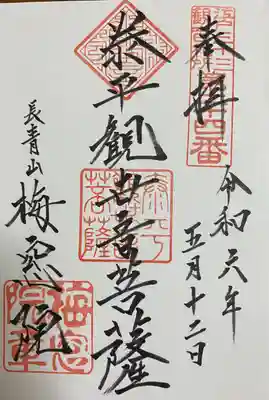 奉拝
令和六年
五月十二日
泰平観世音菩薩
長青山
梅窓院
梅窓
院章